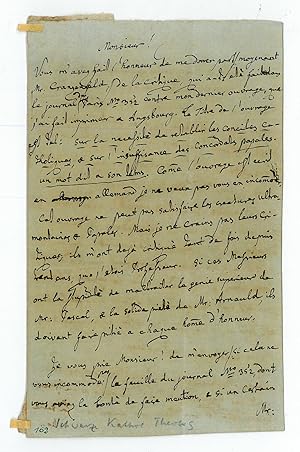 Monsieur!
Vous m'avez fait l'honneur de me donner part moyenant
Mr. de la critique, qui a été faite dans
le journal Paris No. 352 contre mon dernier ouvrage, que
j'ai fait imprimer a Augsbourg. Le titre de l'ouvrage
est tel: Sur la necessité de rétablir les conciles Ca-
tholiques, & sur l'insuffisance des Concordats papales.
un mot dit a son tems. Come l'ouvrage est ecrit
en allemand je ne veux pas vous en incomodér.
Cet ouvrage ne peut pas satisfaire les creatures ultra-
montaires & papales. Mais je ne crains pas leurs Cri-
tiques; ils m'ont déjà critiqué tant de fois depuis
ans, que j'etois Professeur. Si ces Messieurs
ont la de maltraiter le genie superieur de
Mr. Pascal, & la solide pieté de Mr. Arnauld, ils
doivent faire pitié a chaque home d'honneur.
Je vous prie Monsieur! de m'envoyer, si cela ne
vous incommode pas, la feuille du journal No. 352, dont
vous aviez la bonté de faire mention, & si un certain
Mr.
163 Schwarz Kathol. Theolog